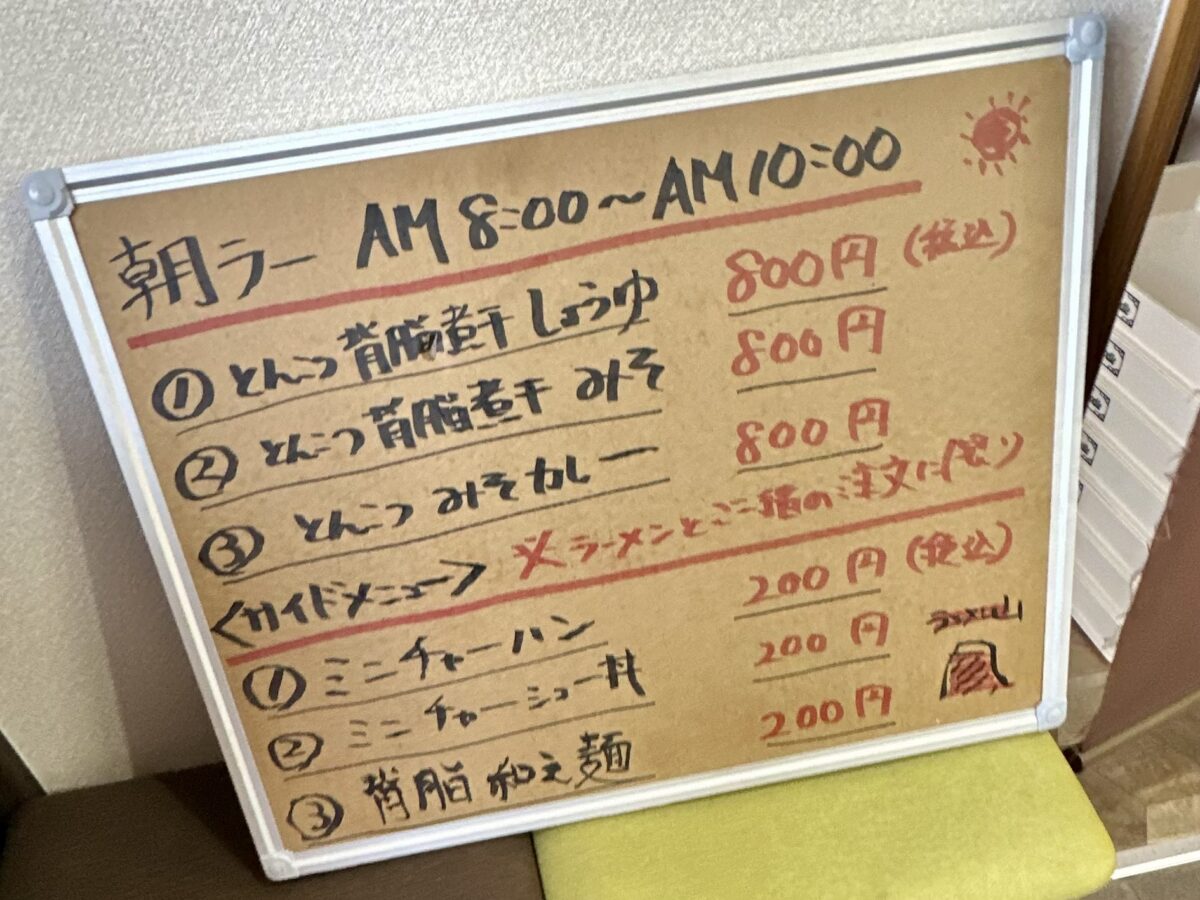 朝ラー AM 8:00～AM 10:00
① とんこつ背脂煮干しょうゆ 800円 (税込)
② とんこつ背脂煮干みそ 800円
③ とんこつみそカレー 800円
<サイドメニュー> ※ラーメンとご一緒の注文に限り
① ミニチャーハン 200円 (税込)
② ミニチャーシュー丼 200円
③ 背脂和え麺 200円